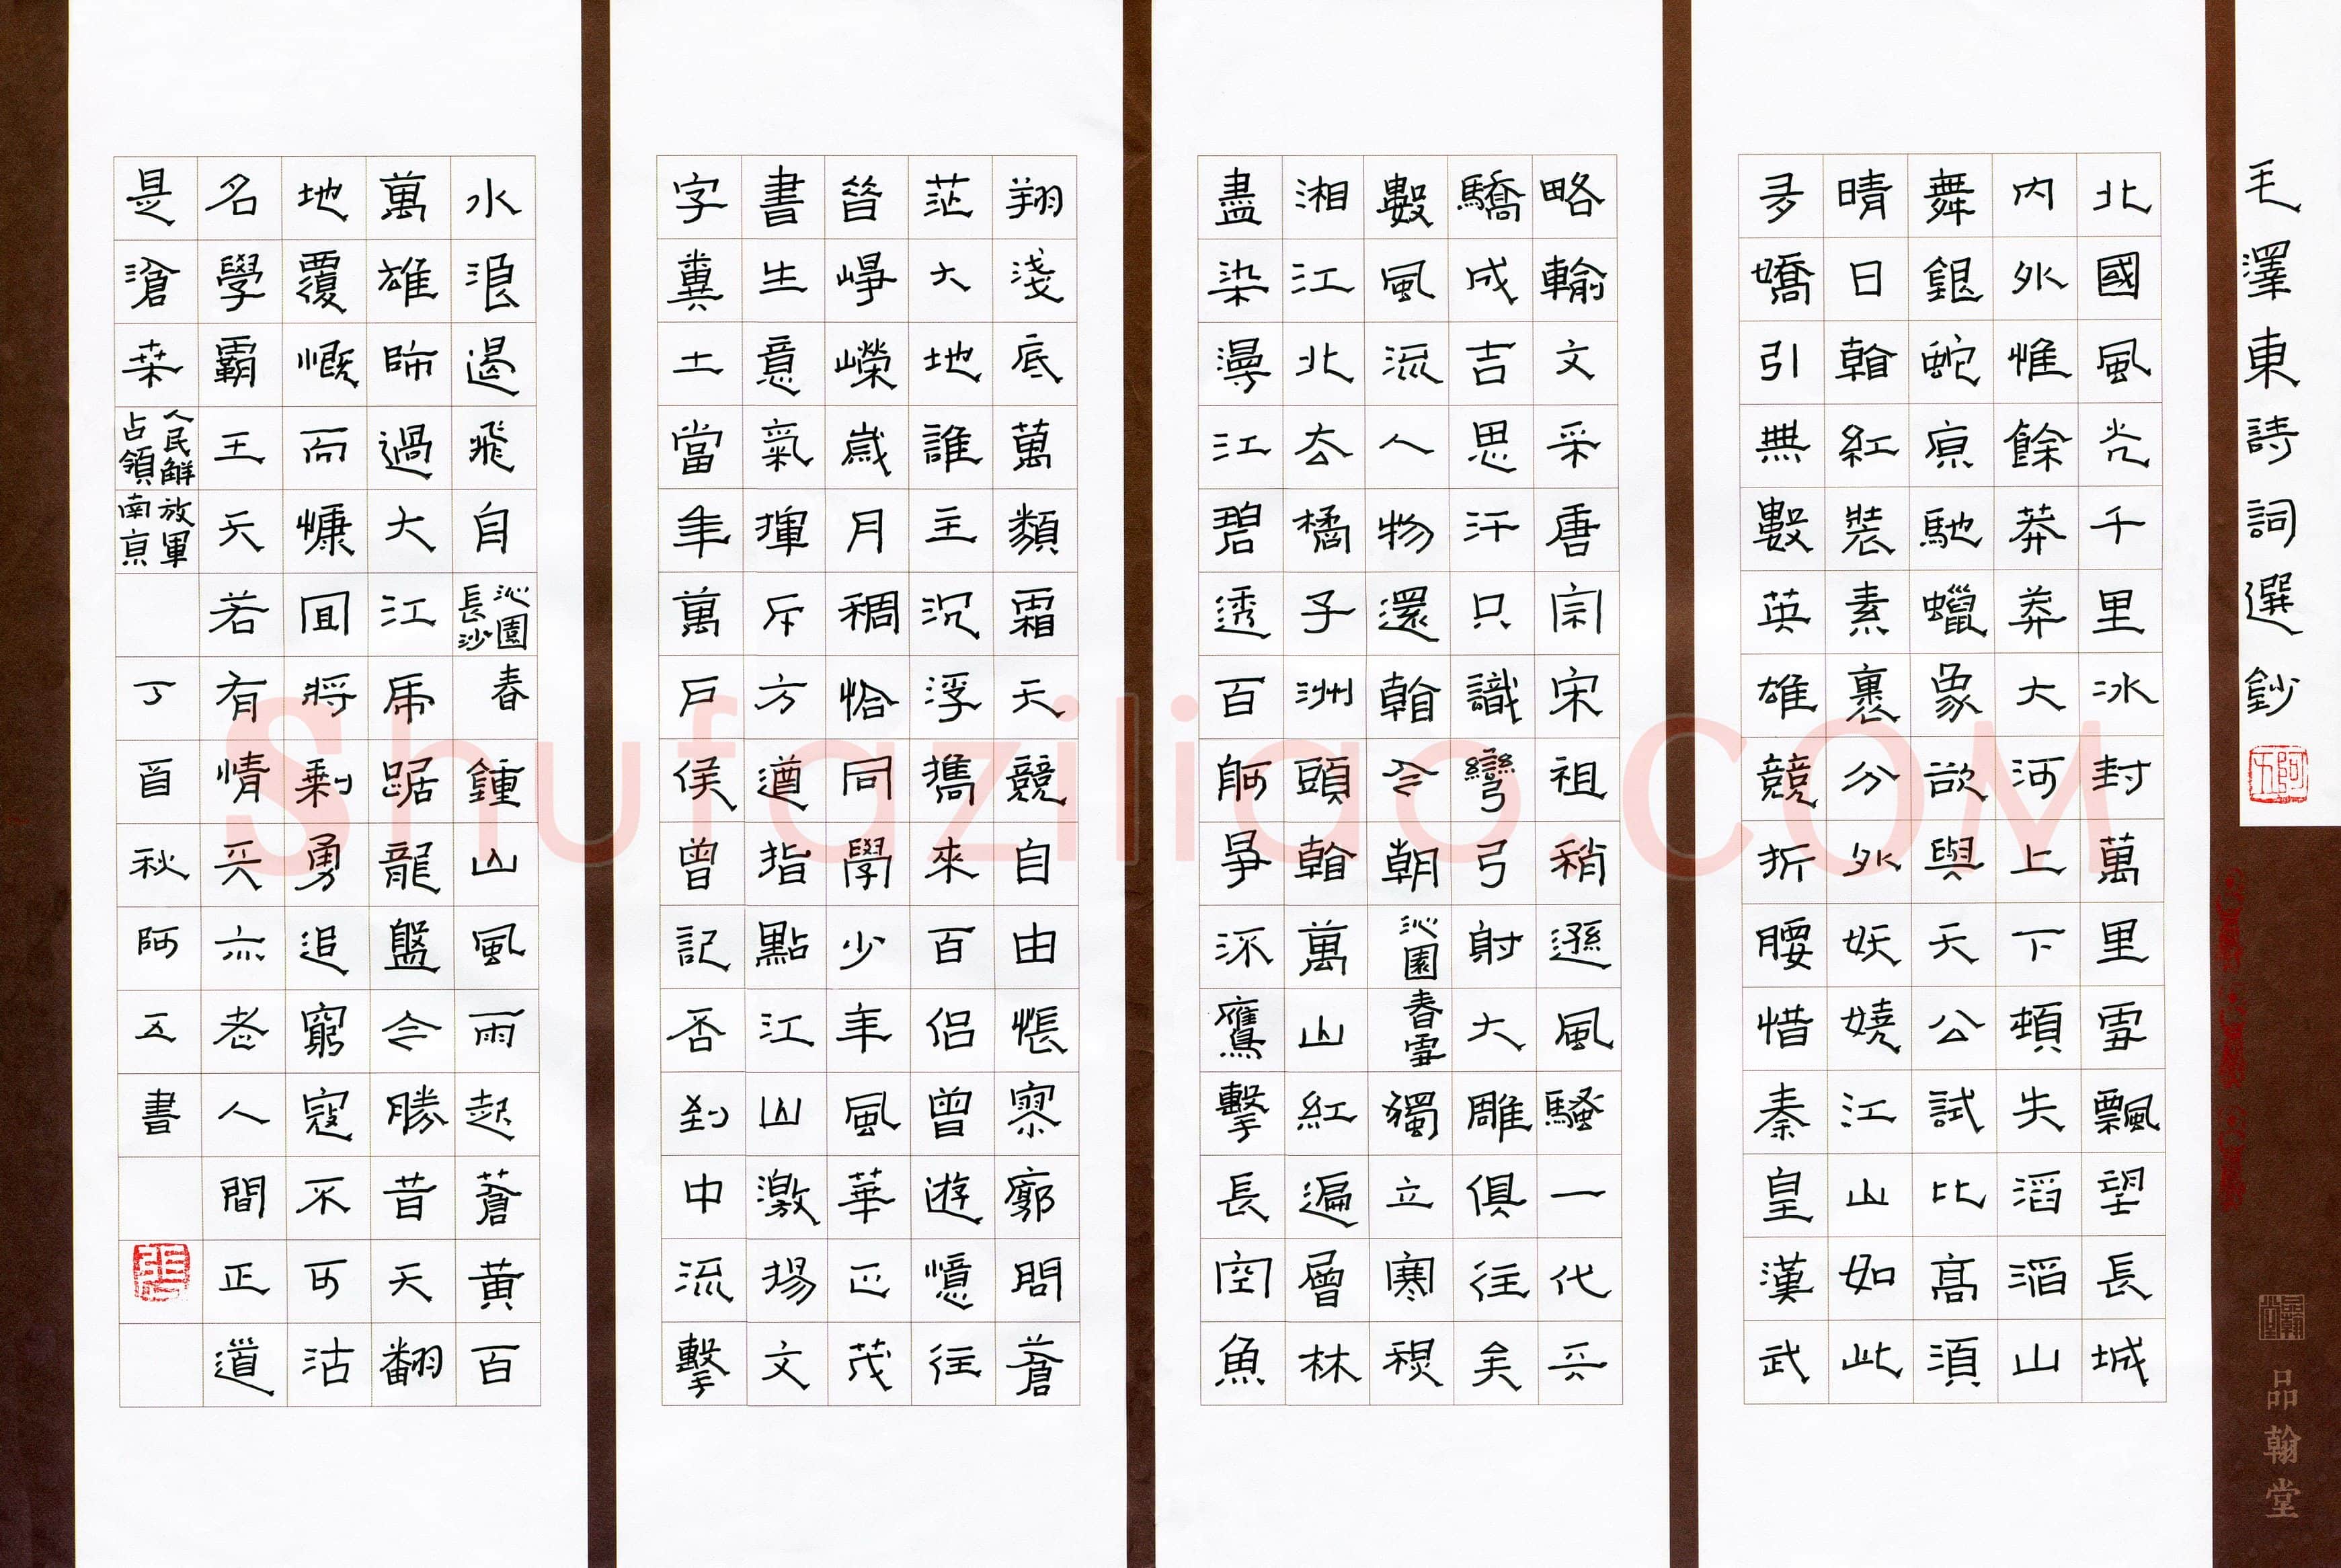 毛澤東詩詞選鈔
阿五
北國風光千里冰封萬里雪飄望長城
內外惟餘莽莽大河上下頓失滔滔山
舞銀蛇原馳蠟象欲與天公試比高須
晴日看紅裝素裹分外妖嬈江山如此
多嬌引無數英雄競折腰惜秦皇漢武
略輸文采唐宗宋祖稍遜風騷一代天
驕成吉思汗只識彎弓射大雕俱往矣
數風流人物還看今朝沁園春雪獨立寒秋
湘江北去橘子洲頭看萬山紅遍層林
盡染漫江碧透百舸爭流鷹擊長空魚
翔淺底萬類霜天競自由悵寥廓問蒼
茫大地誰主沉浮攜來百侶曾遊憶往
昔崢嶸歲月稠恰同學少年風華正茂
書生意氣揮斥方遒指點江山激揚文
字糞土當年萬戶侯曾記否到中流擊
水浪遏飛舟沁園春長沙鍾山風雨起蒼黃百
萬雄師過大江虎踞龍盤今勝昔天翻
地覆慨而慷宜將剩勇追窮寇不可沽
名學霸王天若有情天亦老人間正道
是滄桑人民解放軍占領南京丁酉秋阿五書
品翰堂
Shufaziliao.COM